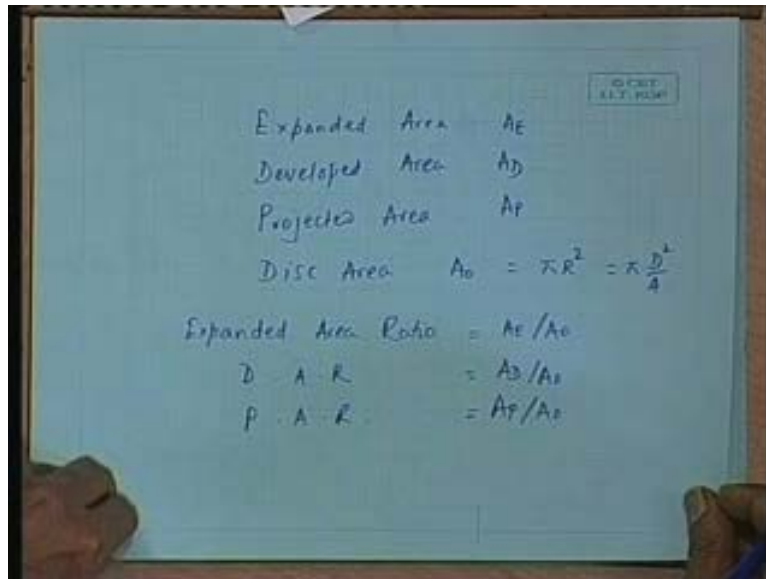 © CET
I.I.T. KGP
Expanded Area AE
Developed Area AD
Projected Area AP
Disc Area A0 = πR² = π D²/4
Expanded Area Ratio = AE/A0
D . A . R = AD/A0
P . A . R . = AP/A0